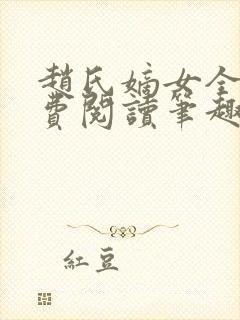 趙氏嫡女全
費閱讀筆趣
紅豆